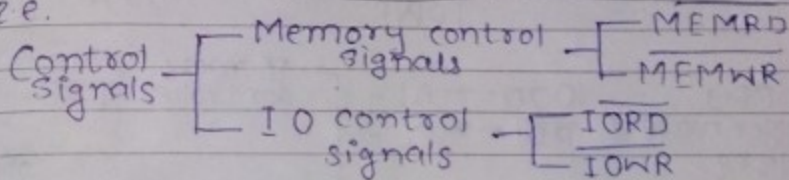 i.e.
Control signals
Memory control signals
M̅E̅M̅R̅D̅
M̅E̅M̅W̅R̅
IO control signals
I̅O̅R̅D̅
I̅O̅W̅R̅